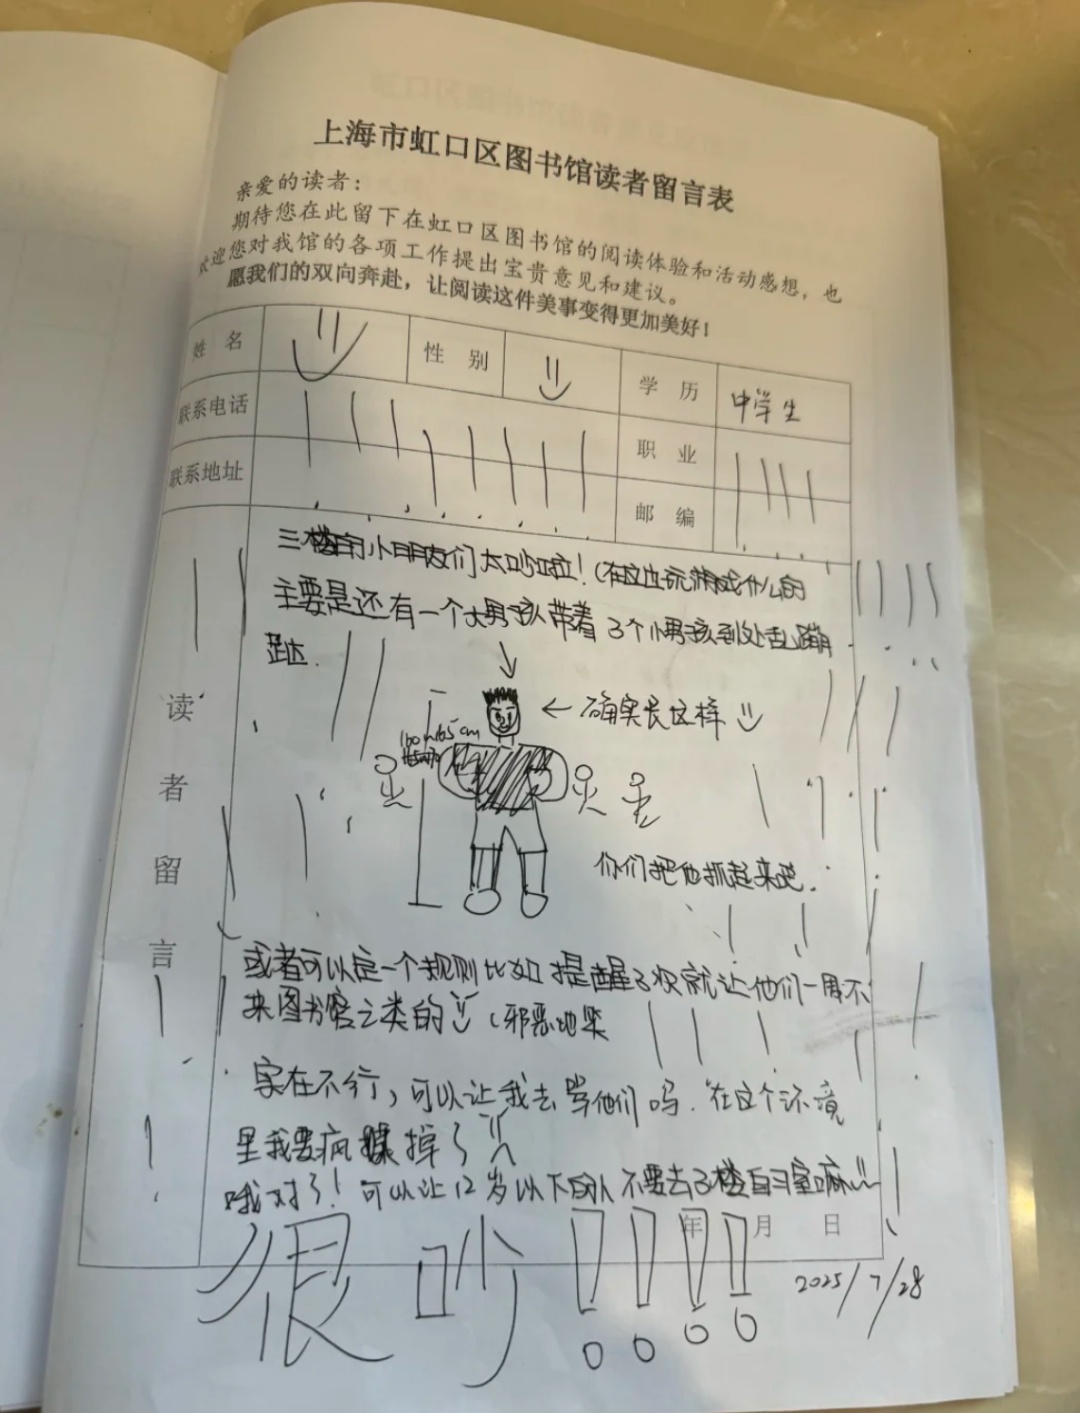 上海市虹口区图书馆读者留言表
亲爱的读者：
期待您在此留下在虹口区图书馆的阅读体验和活动感想，也
欢迎您对我馆的各项工作提出宝贵意见和建议。
愿我们的双向奔赴，让阅读这件美事变得更加美好！
姓 名 性 别 学 历 中学生
联系电话 职 业
联系地址 邮 编
读者留言
三楼的小朋友们太吵啦！(在这边玩游戏什么的
主要是还有一个大男孩带着3个小男孩到处乱蹦
跶.
← 确实长这样
160~165cm
你们把他抓起来吧.
或者可以定一个规则比如提醒3次就让他们一周不
来图书馆之类的 (邪恶地笑
实在不行，可以让我去骂他们吗. 在这个环境
里我要疯掉了
哦对了！可以让12岁以下的人不要去3楼自习室嘛
年 月 日
很吵！！！！
2025/7/28